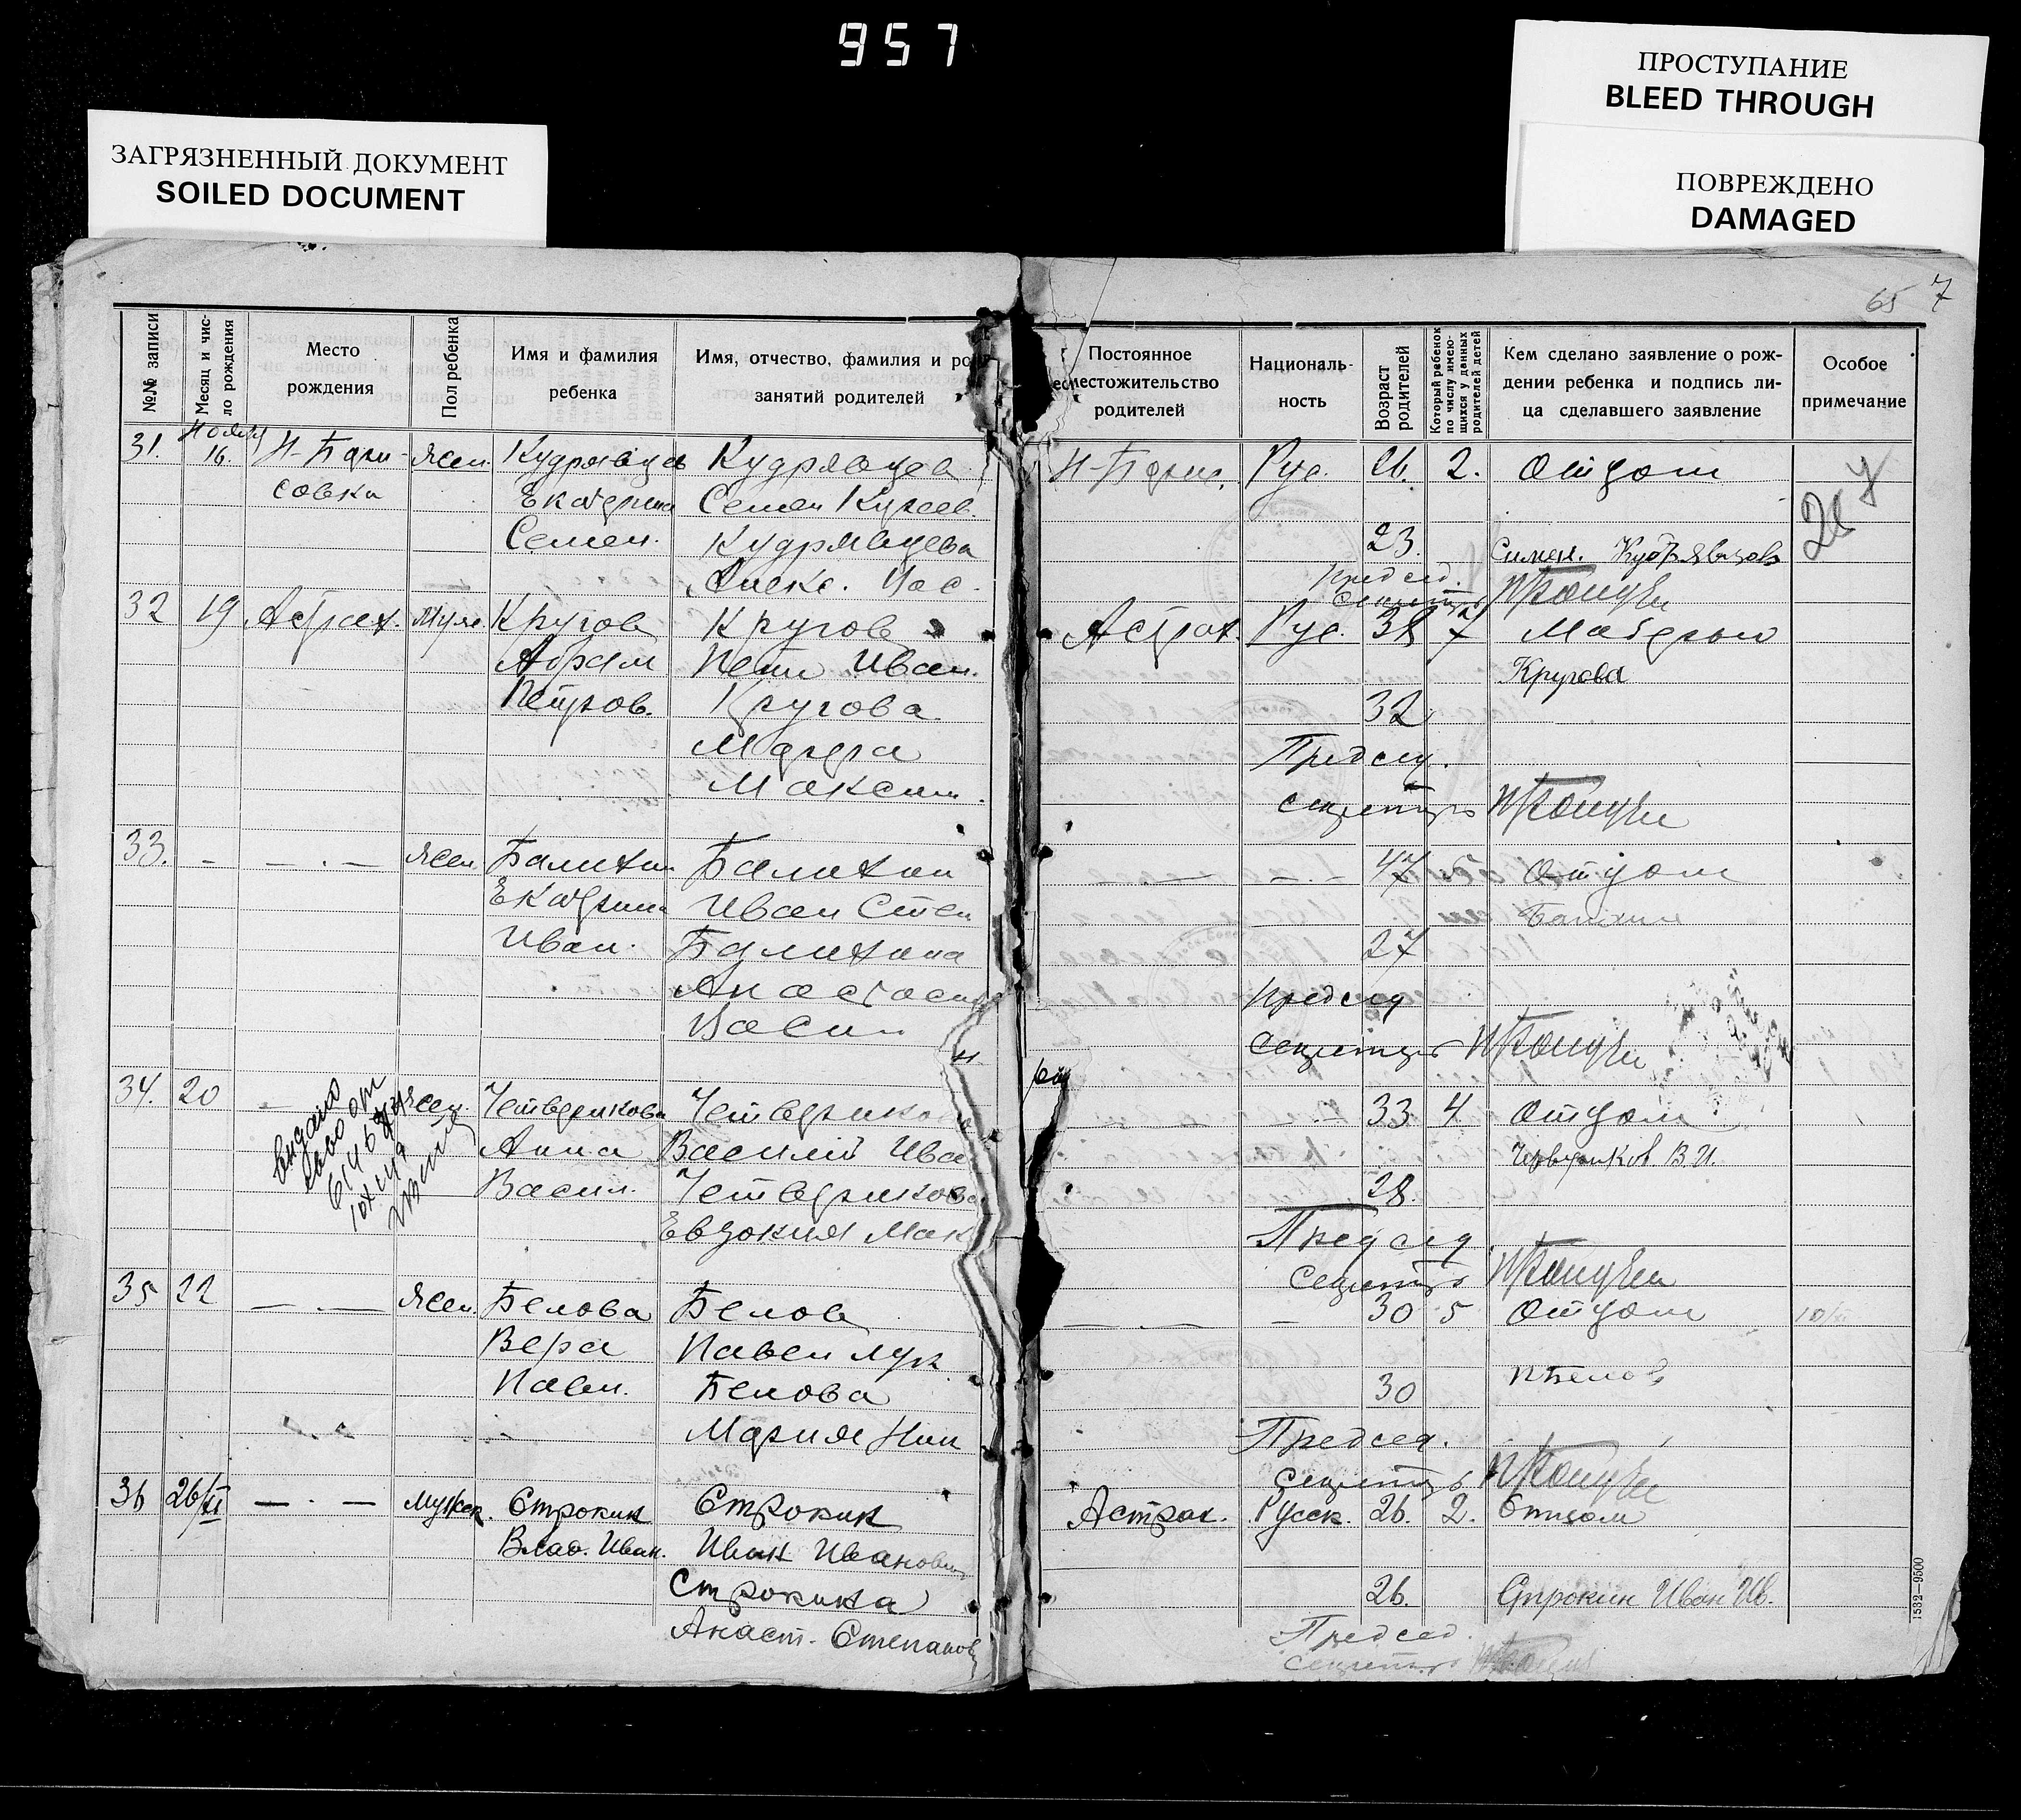 957
ПРОСТУПАНИЕ
BLEED THROUGH
ЗАГРЯЗНЕННЫЙ ДОКУМЕНТ
SOILED DOCUMENT
ПОВРЕЖДЕНО
DAMAGED
65 7
№№ записи
Месяц и чис-
ло рождения
Место
рождения
Пол ребенка
Имя и фамилия
ребенка
Имя, отчество, фамилия и ро
занятий родителей
Постоянное
местожительство
родителей
Националь-
ность
Возраст
родителей
Который ребенок
по числу имею-
щихся у данных
родителей детей
Кем сделано заявление о рож-
дении ребенка и подпись ли-
ца сделавшего заявление
Особое
примечание
31. Ноября 16. Н-Бори- Жен. Кудрявцев Кудрявцев Рус. 26. 2. Отцом
совка Екатерина Семен
Семен. Кудрявцева 23. Кудрявцов
Алекс. Вас. Председ.
Секретарь
32 19 Астрах. Муж. Кругов Кругов Астрах. Рус. 38 7 Матерью
Абрам Петр Иван. Кругова
Петров. Кругова 32
Председ.
Максим. Секретарь
33. — — . — Жен. Балихин Балихин — . — — . — 47 Отцом
Екатерина Иван Степ
Иван. Балихина 27
Анастасия Председ
Васил Секретарь
34. 20 Жен. Четверикова Четвериков 33 4 Отцом
Анна Василий Ива В. И.
Васил. Четверикова 28.
Евдокия Мак Председ
Секретарь
35 22 — . — Жен. Белова Белов — . — — 30 5 Отцом
Вера Павел Лук
Павл. Белова 30 П Белов
Мария Ник Председ.
Секретарь
36 26/XI — . — Мужск. Строкин Строкин Астрах. Русск. 26. 2. Отцом
Влад. Иван. Иван Иванович
Строкина 26. Строкин Иван Ив.
Анаст. Степанов Председ.
Секретарь
1532—9500